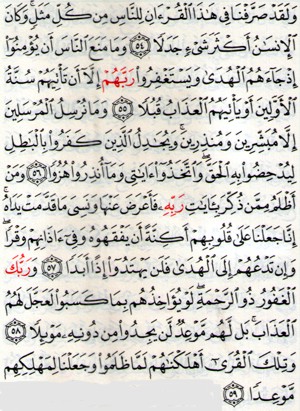 وَلَقَدْ صَرَّفْنَا فِي هَٰذَا ٱلْقُرْءَانِ لِلنَّاسِ مِن كُلِّ مَثَلٍ وَكَانَ
ٱلْإِنسَٰنُ أَكْثَرَ شَىْءٍ جَدَلًا ٥٤ وَمَا مَنَعَ ٱلنَّاسَ أَن يُؤْمِنُوٓا۟
إِذْ جَآءَهُمُ ٱلْهُدَىٰ وَيَسْتَغْفِرُوا۟ رَبَّهُمْ إِلَّآ أَن تَأْتِيَهُمْ سُنَّةُ
ٱلْأَوَّلِينَ أَوْ يَأْتِيَهُمُ ٱلْعَذَابُ قُبُلًا ٥٥ وَمَا نُرْسِلُ ٱلْمُرْسَلِينَ
إِلَّا مُبَشِّرِينَ وَمُنذِرِينَ ۚ وَيُجَٰدِلُ ٱلَّذِينَ كَفَرُوا۟ بِٱلْبَٰطِلِ
لِيُدْحِضُوا۟ بِهِ ٱلْحَقَّ ۖ وَٱتَّخَذُوٓا۟ ءَايَٰتِى وَمَآ أُنذِرُوا۟ هُزُوًا ٥٦ وَمَنْ
أَظْلَمُ مِمَّن ذُكِّرَ بِـَٔايَٰتِ رَبِّهِۦ فَأَعْرَضَ عَنْهَا وَنَسِىَ مَا قَدَّمَتْ يَدَاهُ ۚ
إِنَّا جَعَلْنَا عَلَىٰ قُلُوبِهِمْ أَكِنَّةً أَن يَفْقَهُوهُ وَفِىٓ ءَاذَانِهِمْ وَقْرًا ۖ
وَإِن تَدْعُهُمْ إِلَى ٱلْهُدَىٰ فَلَن يَهْتَدُوٓا۟ إِذًا أَبَدًا ٥٧ وَرَبُّكَ
ٱلْغَفُورُ ذُو ٱلرَّحْمَةِ ۖ لَوْ يُؤَاخِذُهُم بِمَا كَسَبُوا۟ لَعَجَّلَ لَهُمُ
ٱلْعَذَابَ ۚ بَل لَّهُم مَّوْعِدٌ لَّن يَجِدُوا۟ مِن دُونِهِۦ مَوْئِلًا ٥٨
وَتِلْكَ ٱلْقُرَىٰٓ أَهْلَكْنَٰهُمْ لَمَّا ظَلَمُوا۟ وَجَعَلْنَا لِمَهْلِكِهِم
مَّوْعِدًا ٥٩